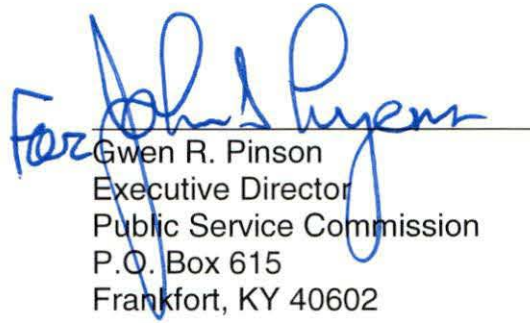 For John S Lyons
Gwen R. Pinson
Executive Director
Public Service Commission
P.O. Box 615
Frankfort, KY 40602